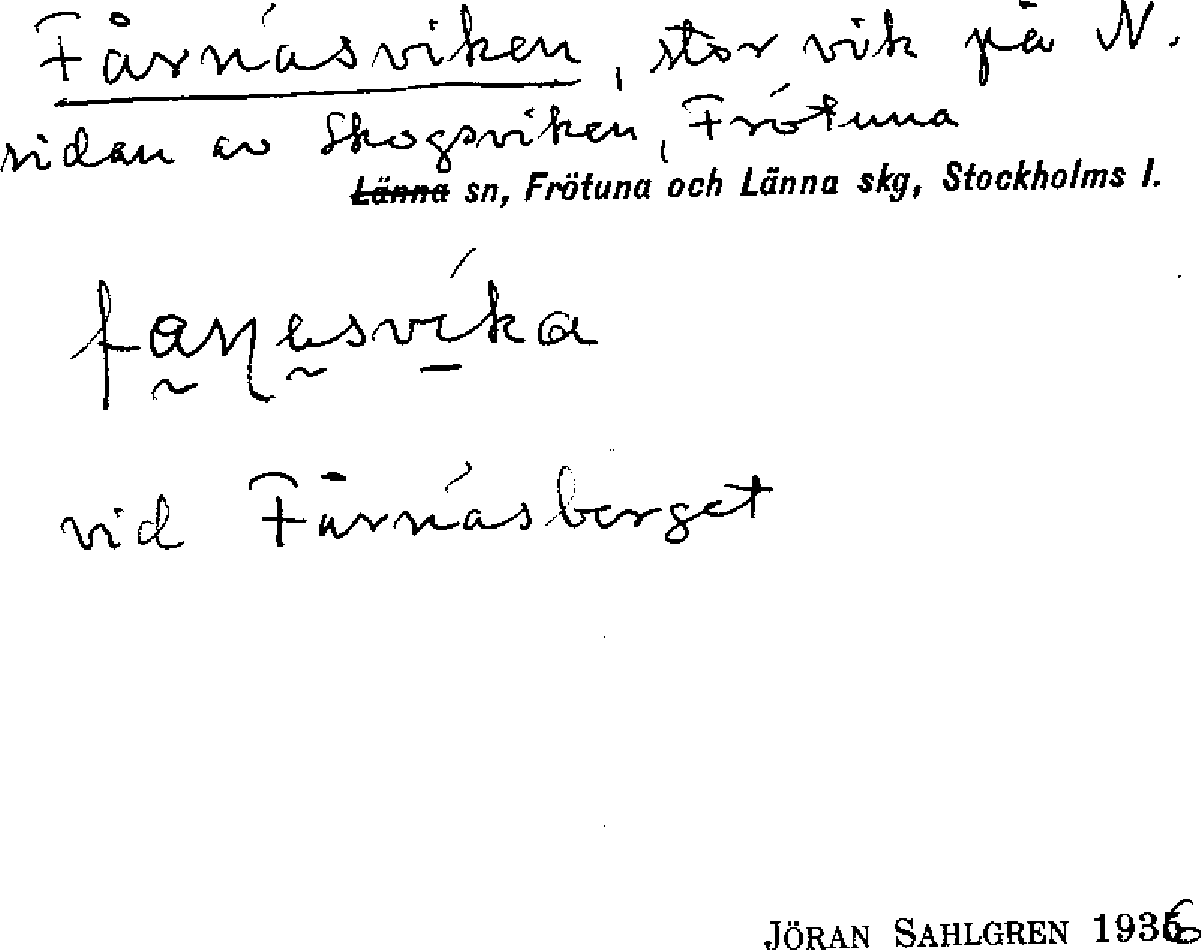 Fårnäsviken, stor vik på N.
sidan av Skogsviken, Frötuna
Länna sn, Frötuna och Länna skg, Stockholms l.
vid Fårnäsberget
JÖRAN SAHLGREN 1936